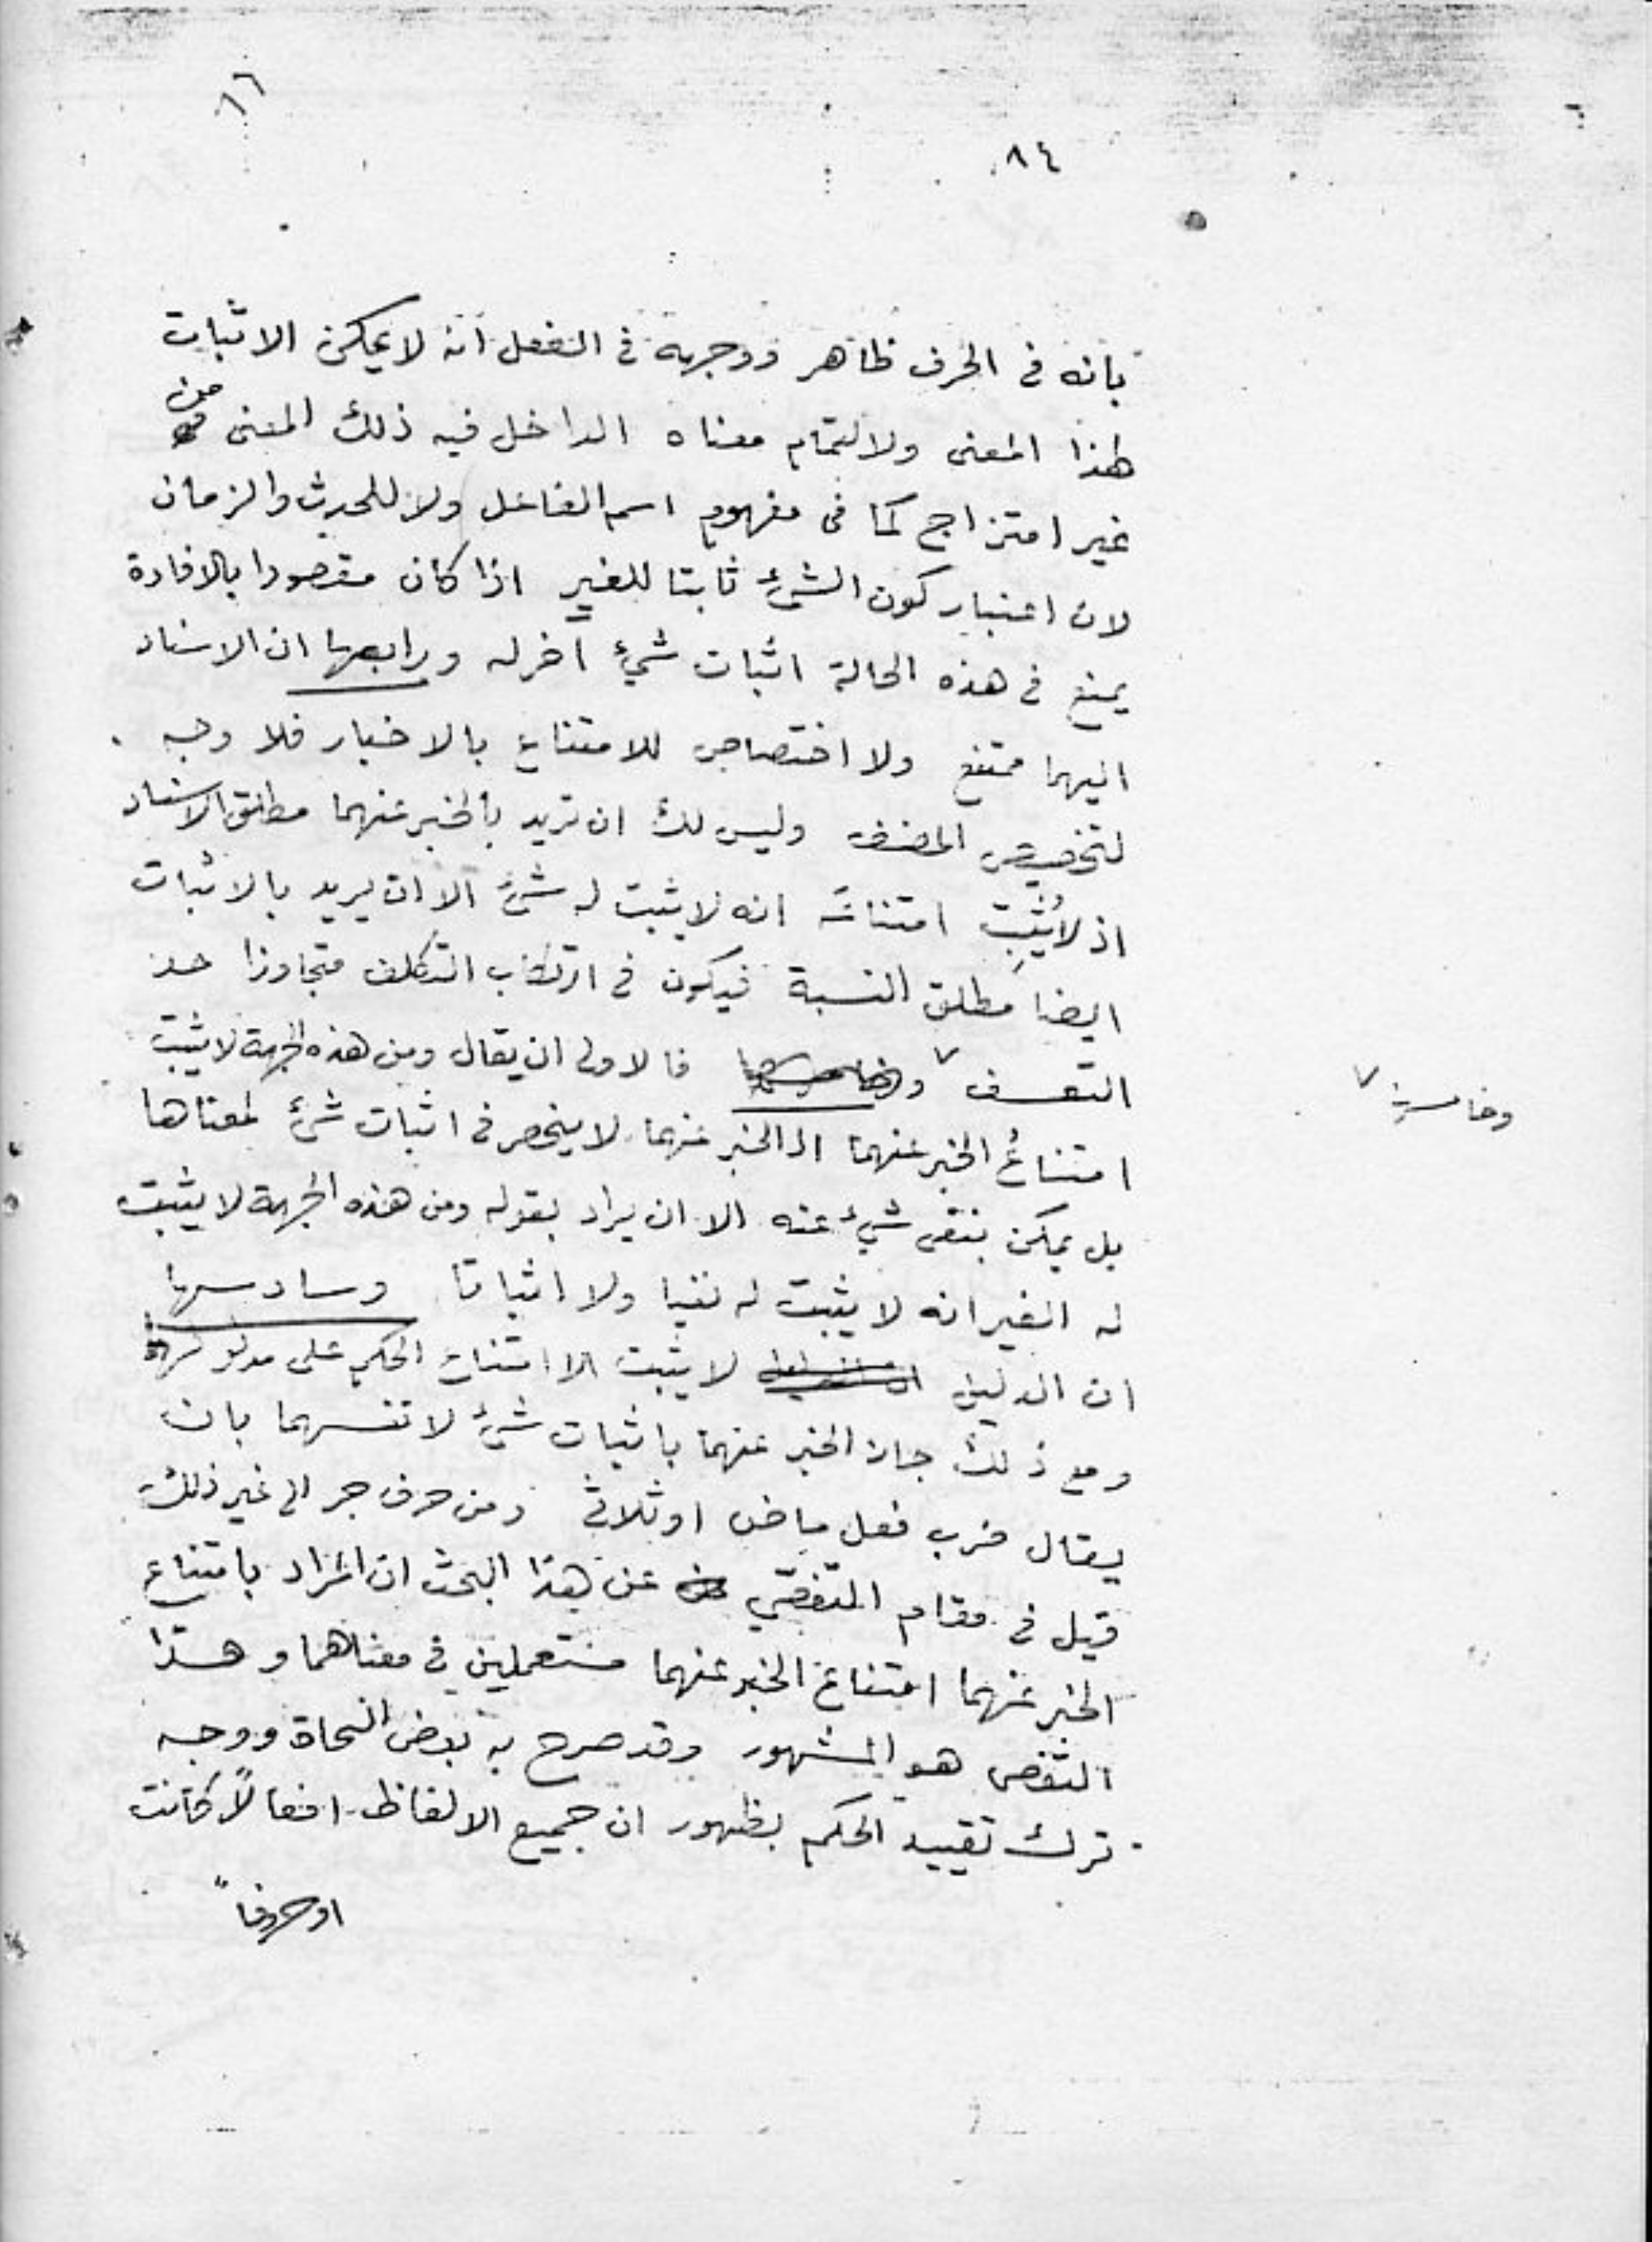 ٨٦
٨٤
بانه في الحرف ظاهر ووجهه في الفعل انه لا يمكن الاثبات
لهذا المعنى ولا لتمام معناه الداخل فيه ذلك المعنى من
غير امتزاج كما في مفهوم اسم الفاعل ولا للحدث والزمان
لان اعتبار كون الشيء ثابتا للغير اذا كان مقصودا بالافادة
يمنع في هذه الحالة اثبات شيء آخر له ورابعها ان الاسناد
اليهما ممتنع ولا اختصاص للامتناع بالاخبار فلا وجه
لتخصيص المصنف وليس لك ان تريد بالخبر عنهما مطلق الاسناد
اذ لا يُثبِت امتناعَه انه لا يثبت له شيء الا ان يريد بالاثبات
ايضا مطلق النسبة فيكون في ارتكاب التكلف متجاوزا حد
التعسف ٧ فالاولى ان يقال ومن هذه الجهة لا يثبت
٧ وخامسها
امتناعُ الخبر عنهما اذ الخبر عنهما لا ينحصر في اثبات شيء لمعناها
بل يمكن بنفي شيء عنه الا ان يراد بقوله ومن هذه الجهة لا يثبت
له الغير انه لا يثبت له نفيا ولا اثباتا وسادسها
ان الدليل لا يثبت الا امتناع الحكم على مدلولهما
ومع ذلك جاز الخبر عنهما باثبات شيء لانفسهما بان
يقال ضرب فعل ماض او ثلاثي ومن حرف جر الى غير ذلك
قيل في مقام التفصي عن هذا البحث ان المراد بامتناع
الخبر عنهما امتناع الخبر عنهما مستعملين في معناهما وهذا
التفصي هو المشهور وقد صرح به بعض النحاة ووجه
ترك تقييد الحكم بظهور ان جميع الالفاظ افعالاً كانت
او حروفاً